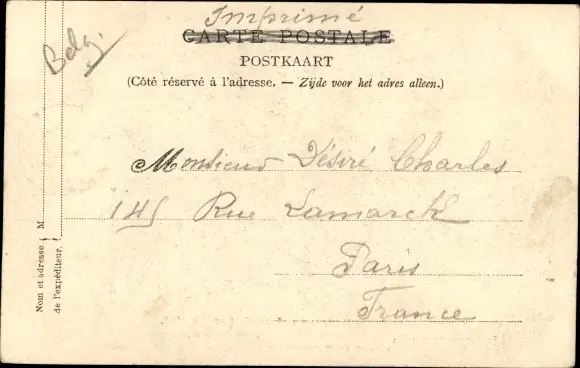 Imprimé
CARTE POSTALE
POSTKAART
(Côté réservé à l'adresse. — Zijde voor het adres alleen.)
Belg.
Monsieur Désiré Charles
145 Rue Lamarck
Paris
France
Nom et adresse { M.
de l'expéditeur.